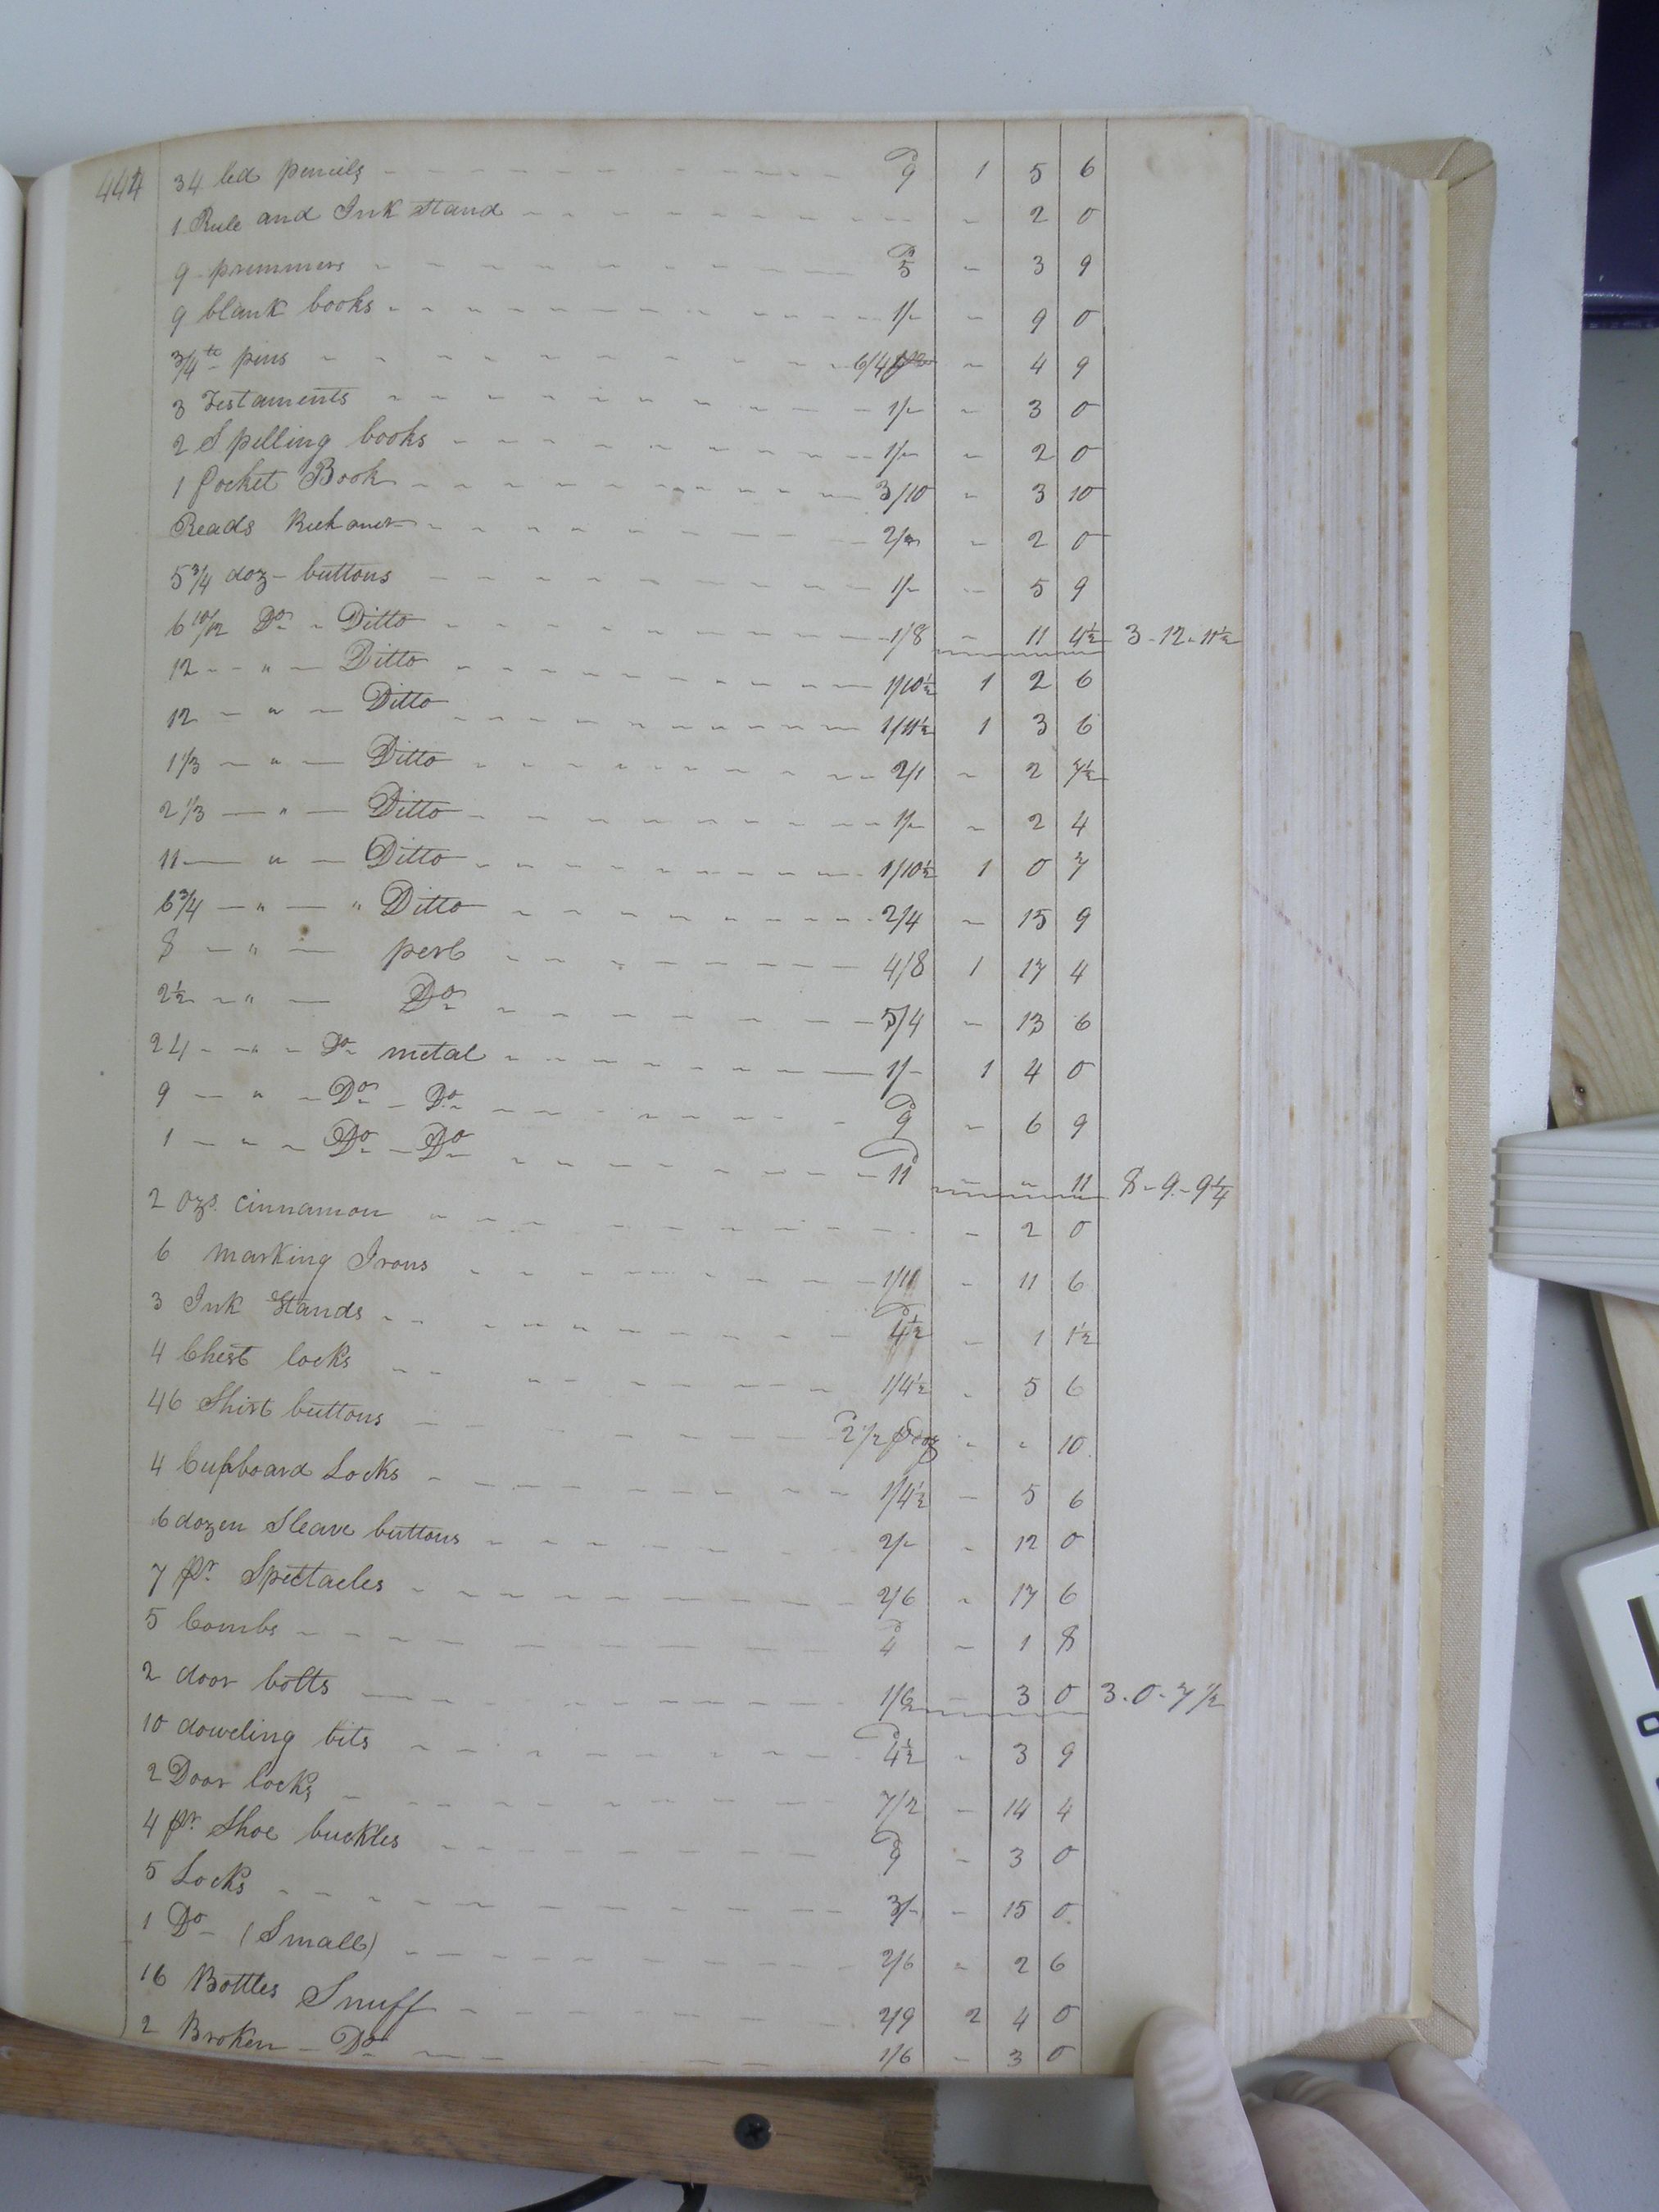 444 34 led pencils d 9 1 5 6
1 Rule and Ink Stand - 2 0
9 primmers d 5 - 3 9
9 blank books 1/- - 9 0
3/4 tb pins 6/4 - 4 9
3 Testaments 1/- - 3 0
2 Spelling books 1/- - 2 0
1 Pocket Book 3/10 - 3 10
Reads 2/- - 2 0
5 3/4 doz- buttons 1/- - 5 9
6 10/12 Do - Ditto 1/8 - 11 4½ 3-12-11½
12 - " - Ditto 1/10½ 1 2 6
12 - " - Ditto 1/11½ 1 3 6
1 1/3 - " - Ditto 2/1 - 2 7½
2 1/3 - " - Ditto 1/- - 2 4
11 - " - Ditto 1/10½ 1 0 7
6 3/4 - " - " Ditto 2/4 - 15 9
8 - " - perl 4/8 1 17 4
2½ - " - Do 5/4 - 13 6
24 - " - Do metal 1/- 1 4 0
9 - " - Do - Do d 9 - 6 9
1 - " - Do - Do d 11 - " 11 8-9-9¼
2 ozs. cinnamon - 2 0
6 marking Irons 1/11 - 11 6
3 Ink Stands d 4½ - 1 1½
4 Chest locks 1/4½ - 5 6
46 Shirt buttons d 2 1/2 doz - " 10
4 Cupboard Locks 1/4½ - 5 6
6 dozen Sleave buttons 2/- - 12 0
7 pr. Spectacles 2/6 - 17 6
5 Combs d 4 - 1 8
2 door bolts 1/6 - 3 0 3-0-7½
10 doweling bits d 4½ - 3 9
2 Door locks 7/2 - 14 4
4 pr. Shoe buckles d 9 - 3 0
5 Locks 3/- - 15 0
1 Do - (Small) 2/6 - 2 6
16 Bottles Snuff 2/9 2 4 0
2 Broken - Do 1/6 - 3 0